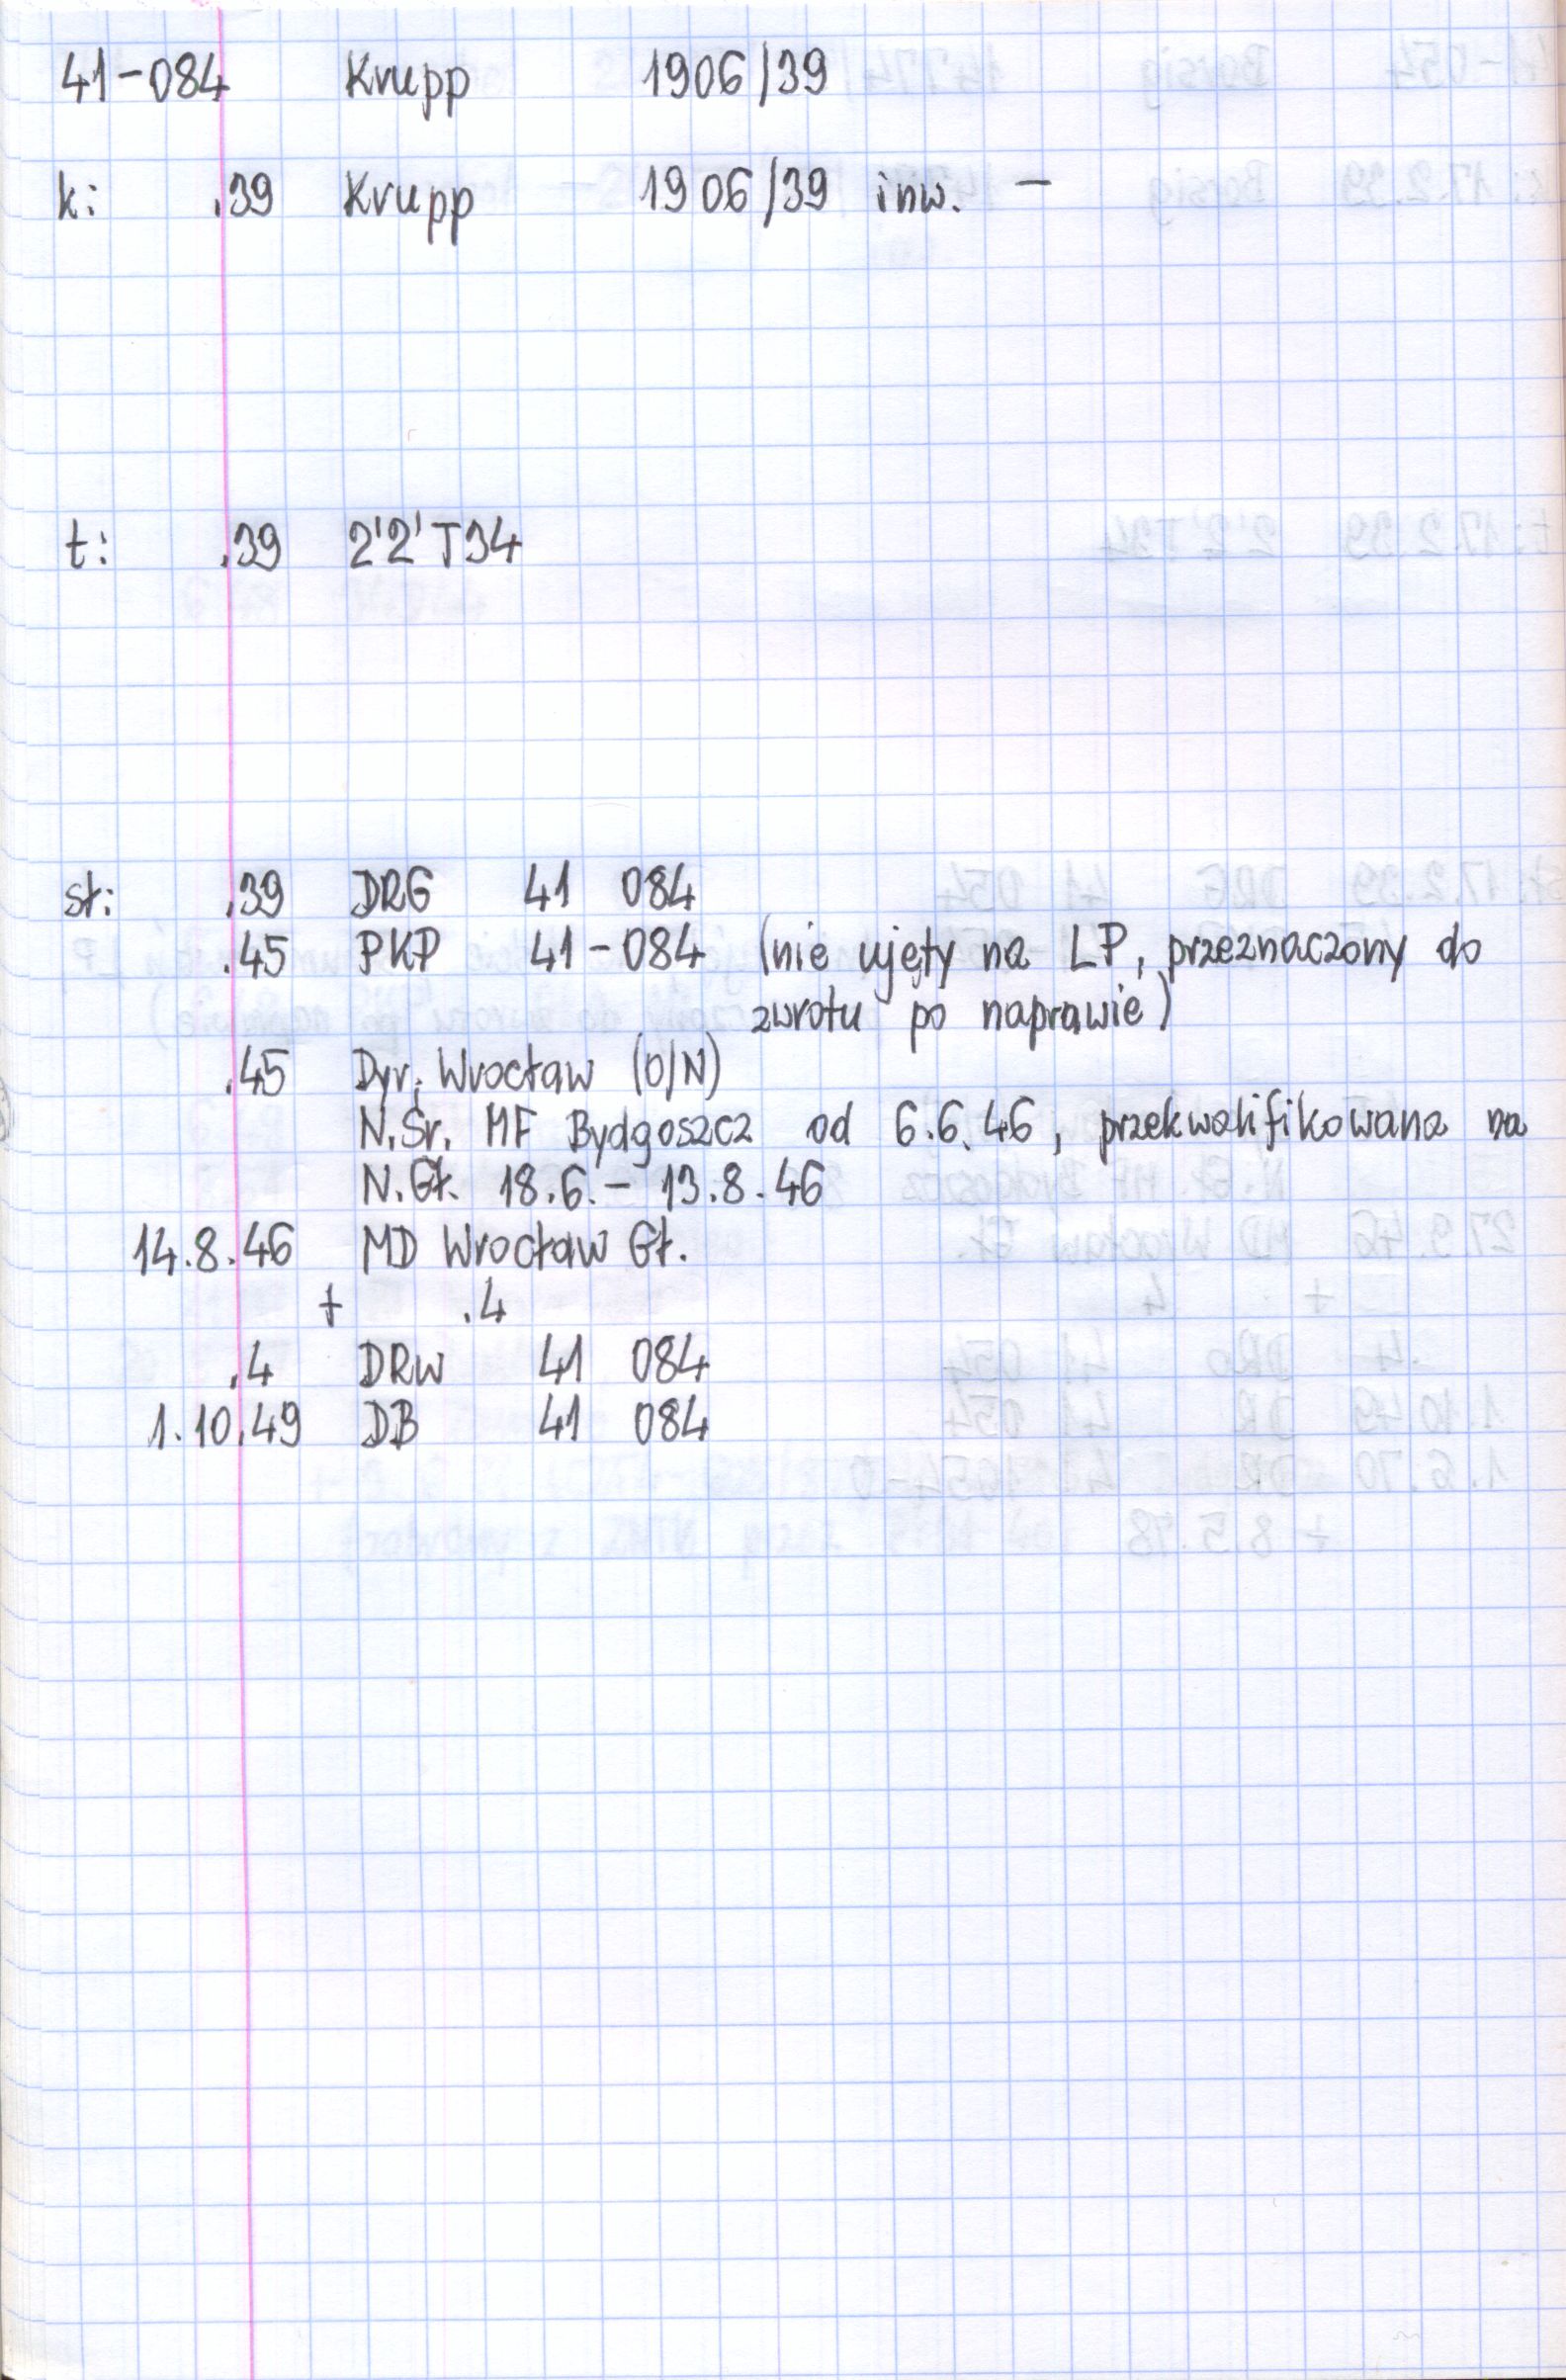 41-084 Krupp 1906/39
k: .39 Krupp 1906/39 inw. —
t: .39 2'2'T34
st: .39 DRG 41 084
.45 PKP 41-084 (nie ujęty na LP, przeznaczony do
zwrotu po naprawie)
.45 Dyr. Wrocław (O/N)
N.Śr. MF Bydgoszcz od 6.6.46, przekwalifikowana na
N.Gł. 18.6.- 13.8.46
14.8.46 MD Wrocław Gł.
+ .4
.4 DRw 41 084
1.10.49 DB 41 084